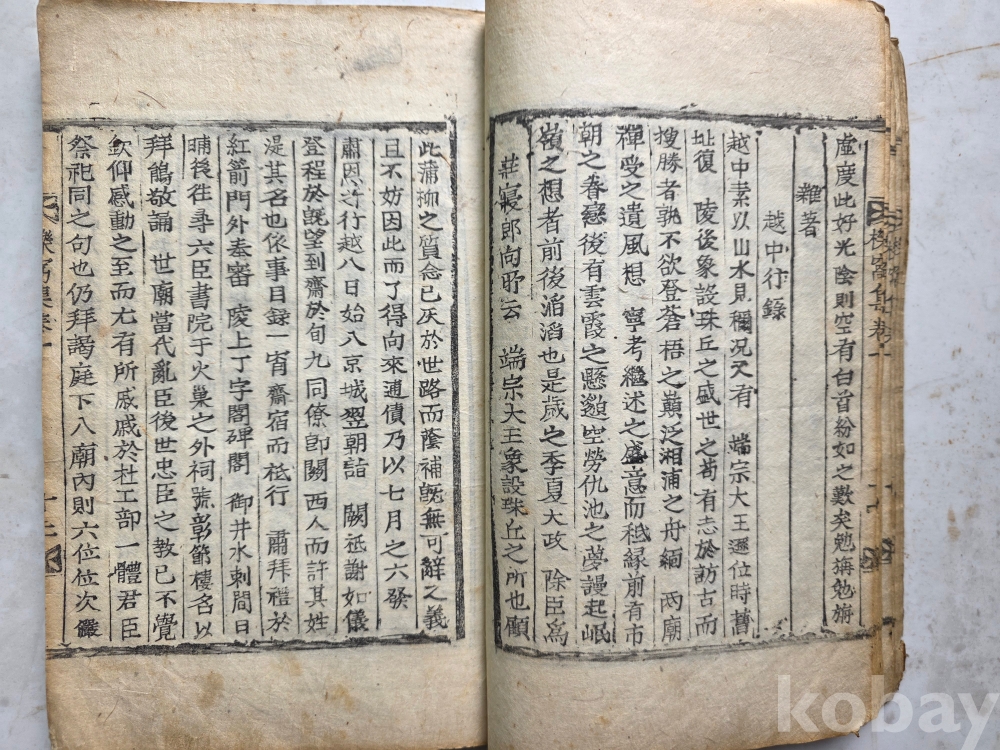 虛度此好光陰則空有白首紛如之歎矣勉旃勉旃
雜著
越中行錄
越中素以山水見稱況又有 端宗大王遜位時舊
址復 陵後象設珠丘之盛世之苟有志於訪古而
搜勝者孰不欲登蒼梧之巓泛湘浦之舟緬 兩廟
禪受之遺風想 寧考繼述之盛意而秪緣前有市
朝之眷戀後有雲霞之懸邈空勞仇池之夢謾起岷
嶺之想者前後滔滔也是歲之季夏大政 除臣爲
莊寢郞向所云 端宗大王象設珠丘之所也顧
此蒲柳之質念已灰於世路而蔭補旣無可辭之義
且不妨因此而了得向來逋債乃以七月之六發
肅恩之行越八日始入京城翌朝詣 闕祗謝如儀
登程於旣望到齋於旬九同僚卽關西人而許其姓
湜其名也依事目錄一宵齋宿而秪行 肅拜禮於
紅箭門外奉審 陵上丁字閣碑閣 御井水刺間日
晡後往尋六臣書院于火巢之外祠號彰節樓名以
拜鵑敬誦 世廟當代亂臣後世忠臣之敎已不覺
欽仰感動之至而尤有所感感於杜工部一體君臣
祭祀同之句也仍拜謁庭下入廟內則六位位次儼
集卷一
kobay